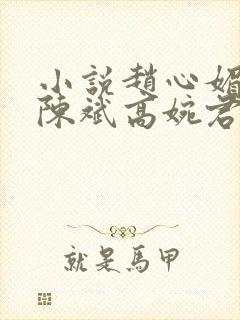 小說趙心媚
陳斌高婉君
就是馬甲